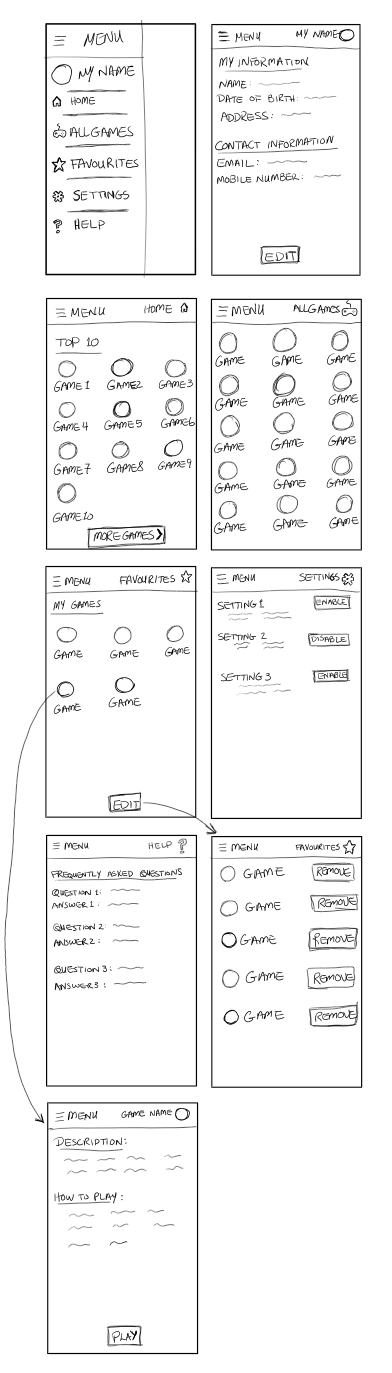 MENU
MY NAME
HOME
ALLGAMES
FAVOURITES
SETTINGS
HELP
MENU MY NAME
MY INFORMATION
NAME:
DATE OF BIRTH:
ADDRESS:
CONTACT INFORMATION
EMAIL:
MOBILE NUMBER:
EDIT
MENU HOME
TOP 10
GAME 1 GAME2 GAME 3
GAME 4 GAME 5 GAME6
GAME 7 GAME8 GAME 9
GAME 10
MORE GAMES
MENU ALLGAMES
GAME GAME GAME
GAME GAME GAME
GAME GAME GAME
GAME GAME GAME
GAME GAME GAME
MENU FAVOURITES
MY GAMES
GAME GAME GAME
GAME GAME
EDIT
MENU SETTINGS
SETTING 1 ENABLE
SETTING 2 DISABLE
SETTING 3 ENABLE
MENU HELP ?
FREQUENTLY ASKED QUESTIONS
QUESTION 1:
ANSWER 1:
QUESTION 2:
ANSWER 2:
QUESTION 3:
ANSWER 3:
MENU FAVOURITES
GAME REMOVE
GAME REMOVE
GAME REMOVE
GAME REMOVE
GAME REMOVE
MENU GAME NAME
DESCRIPTION:
HOW TO PLAY:
PLAY